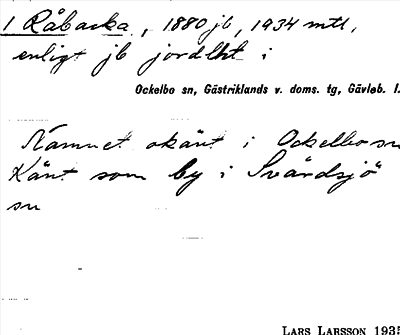 1 Råbacka, 1880 jb, 1934 mtl,
enligt jb jordlht i
Ockelbo sn, Gästriklands v. doms. tg, Gävleb. l.
Namnet okänt i Ockelbo sn
Känt som by i Svärdsjö
sn
LARS LARSSON 1935